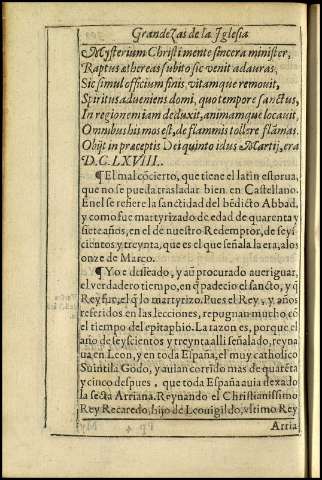 Grandezas de la Iglesia
Mysterium Christi mente sincera minister,
Raptus æthereas subito sic venit ad auras.
Sic simul officium finis, vitamque removit,
Spiritus adueniens domi, quo tempore sanctus,
In regionem iam deduxit, animamque locauit,
Omnibus his mos est, de flammis tollere flāmas.
Obijt in præceptis Dei quinto idus Martij, era
D.C.LXVIII.
¶ El mal cōcierto, que tiene el latin estorua,
que no se pueda trasladar bien en Castellano.
En el se refiere la sanctidad del bēdicto Abbad,
y como fue martyrizado de edad de quarenta y
siete años, en el de nuestro Redemptor, de seys
cientos y treynta, que es el que señala la era, a los
onze de Março.
¶ Yo e desseado, y aū procurado aueriguar,
el verdadero tiempo, en q̄ padecio el sancto, y q̄
Rey fue, el q̄ lo martyrizo. Pues el Rey, y años
referidos en las lecciones, repugnau mucho cō
el tiempo del epitaphio. La razon es, porque el
año de seyscientos y treynta alli señalado, reyna
ua en Leon, y en toda España, el muy catholico
Suintila Godo, y auian corrido mas de quarēta
y cinco despues, que toda España auia dexado
la secta Arriana. Reynando el Christianissimo
Rey Recaredo, hijo de Leouigildo, vltimo Rey
Arria